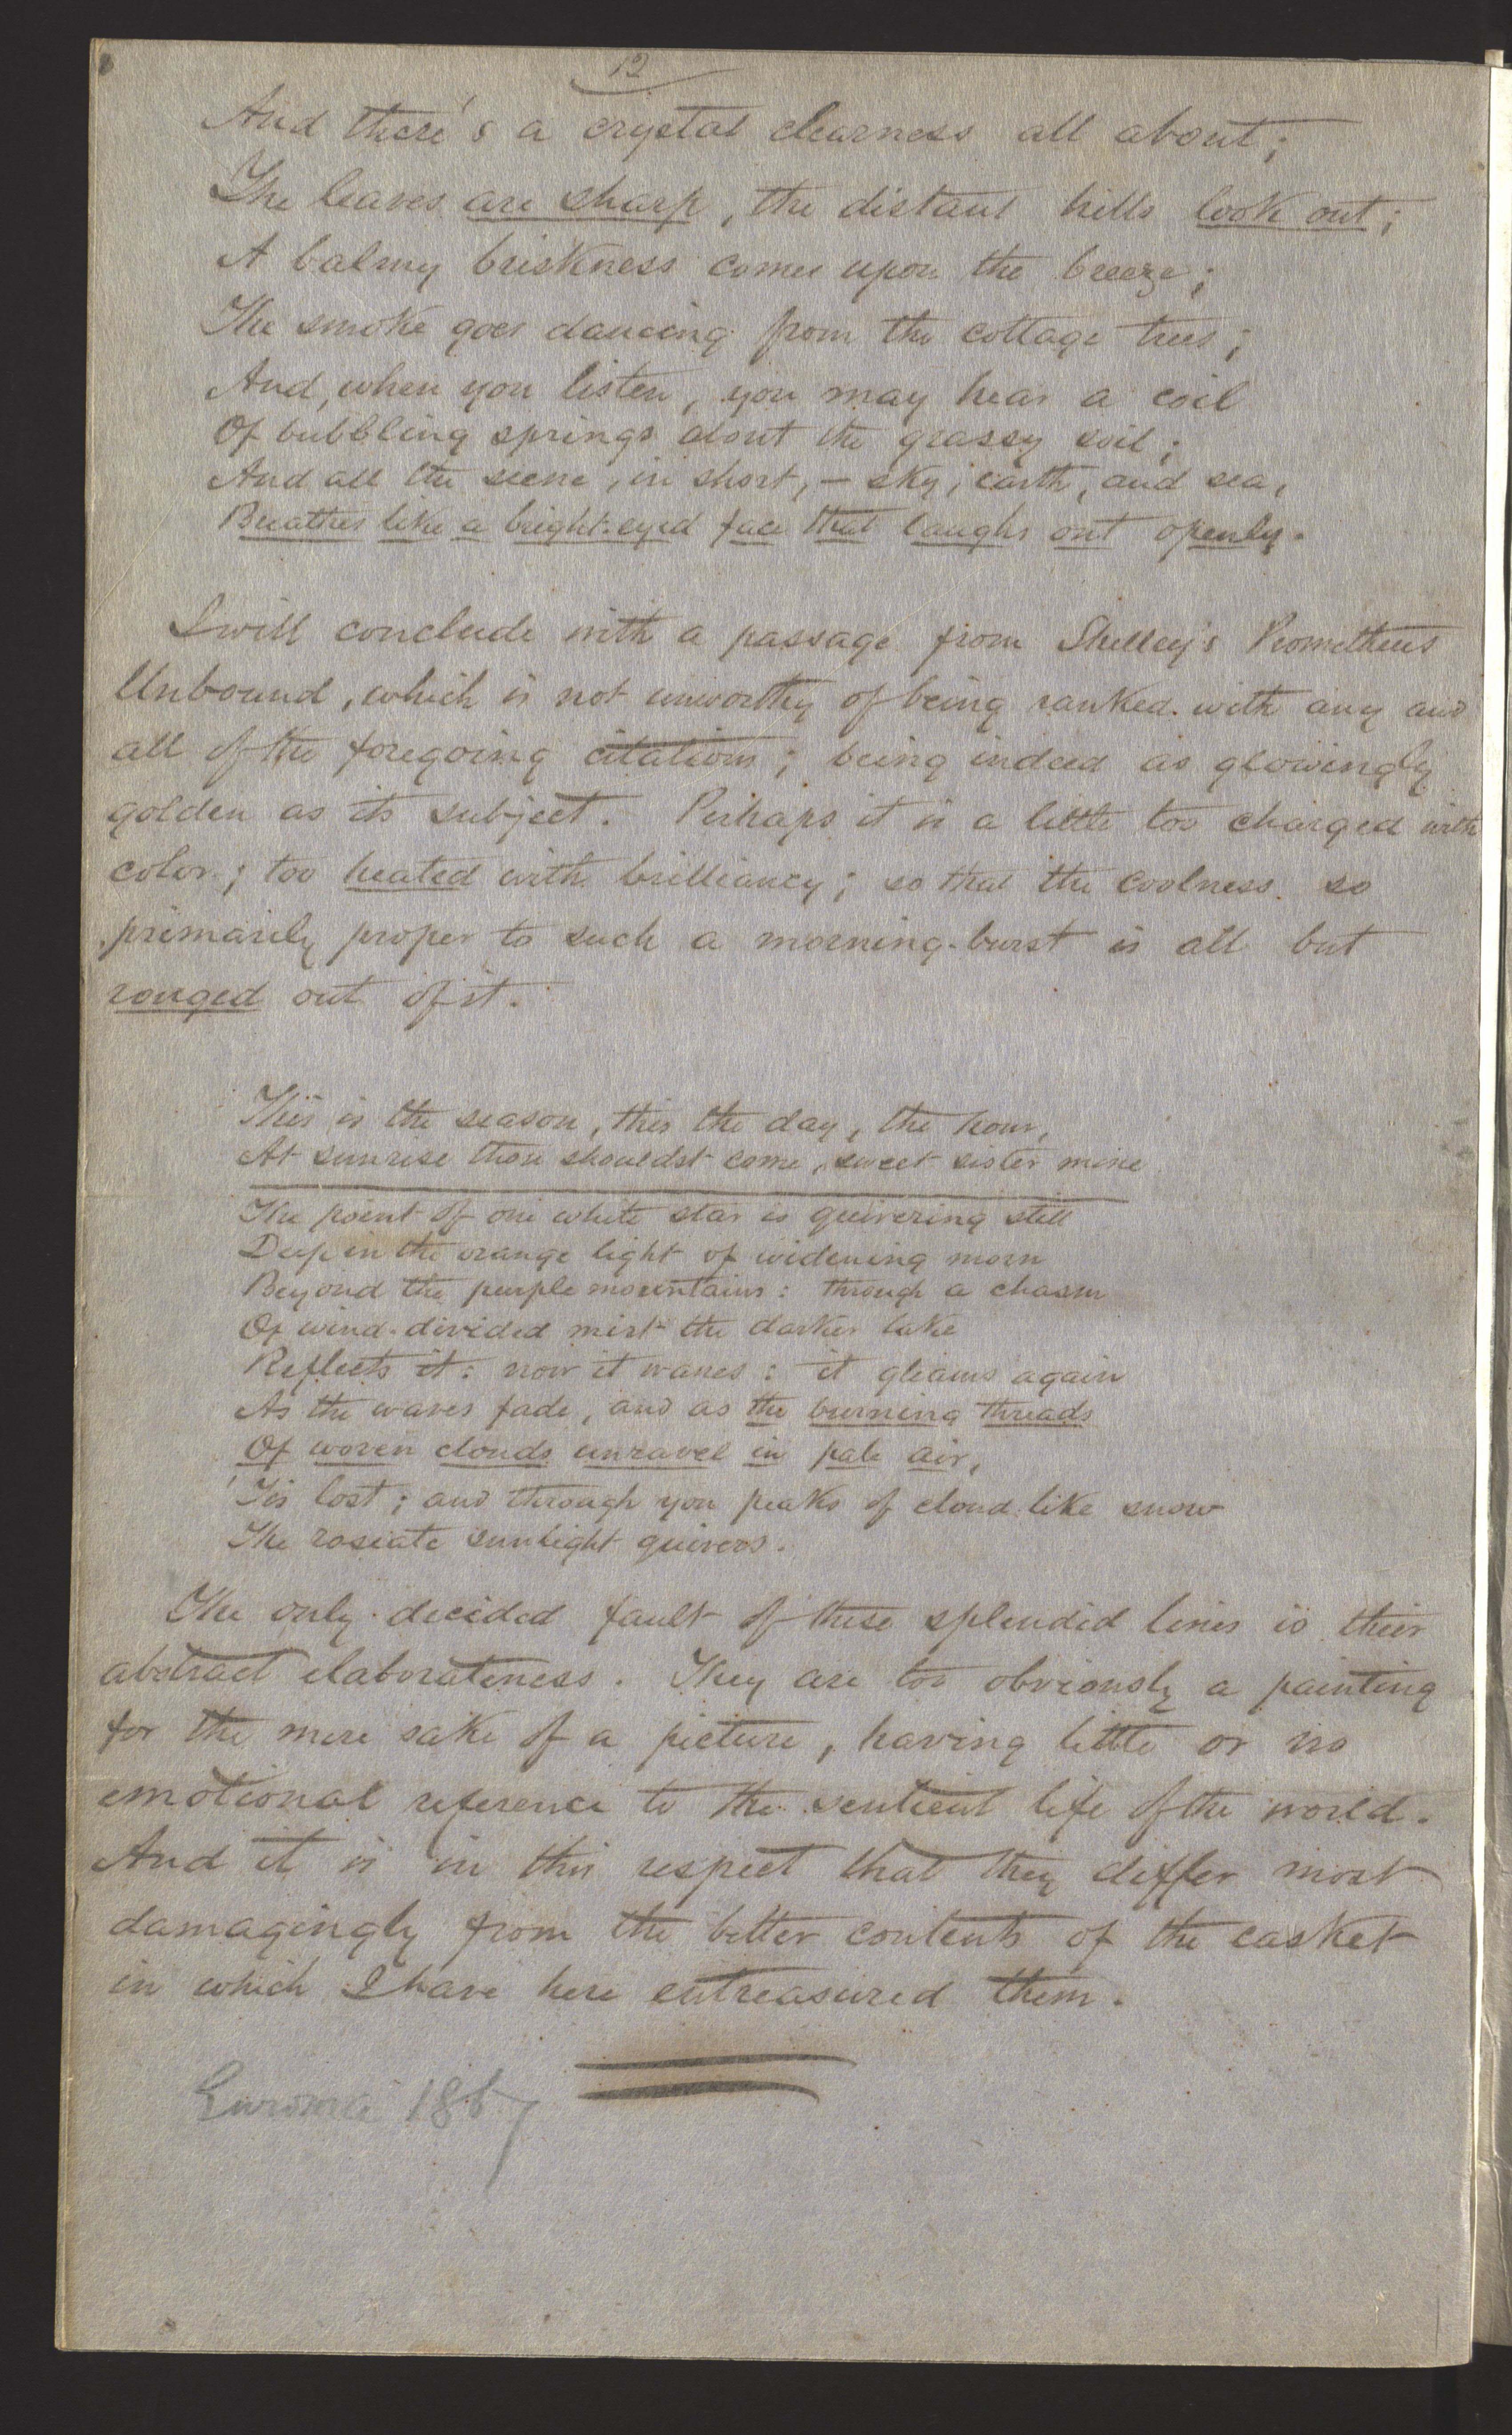 12
And there's a crystal clearness all about;
The leaves are sharp, the distant hills look out;
A balmy briskness comes upon the breeze;
The smoke goes dancing from the cottage trees;
And, when you listen, you may hear a coil
Of bubbling springs about the grassy soil;
And all the scene, in short, — sky, earth, and sea,
Breathes like a bright-eyed face that laughs out openly.
I will conclude with a passage from Shelley's Prometheus
Unbound, which is not unworthy of being ranked with any and
all of the foregoing citations; being indeed as glowingly
golden as its subject. Perhaps it is a little too charged with
color; too heated with brilliancy; so that the coolness so
primarily proper to such a morning-burst is all but
rouged out of it.
This is the season, this the day, the hour,
At sunrise thou shouldst come, sweet sister mine
The point of one white star is quivering still
Deep in the orange light of widening morn
Beyond the purple mountains: through a chasm
Of wind-divided mist the darker lake
Reflects it: now it wanes: it gleams again
As the waves fade, and as the burning threads
Of woven clouds unravel in pale air,
'Tis lost; and through yon peaks of cloud-like snow
The roseate sunlight quivers.
The only decided fault of these splendid lines is their
abstract elaborateness. They are too obviously a painting
for the mere sake of a picture, having little or no
emotional reference to the sentient life of the world.
And it is in this respect that they differ most
damagingly from the better contents of the casket
in which I have here entreasured them.
1867